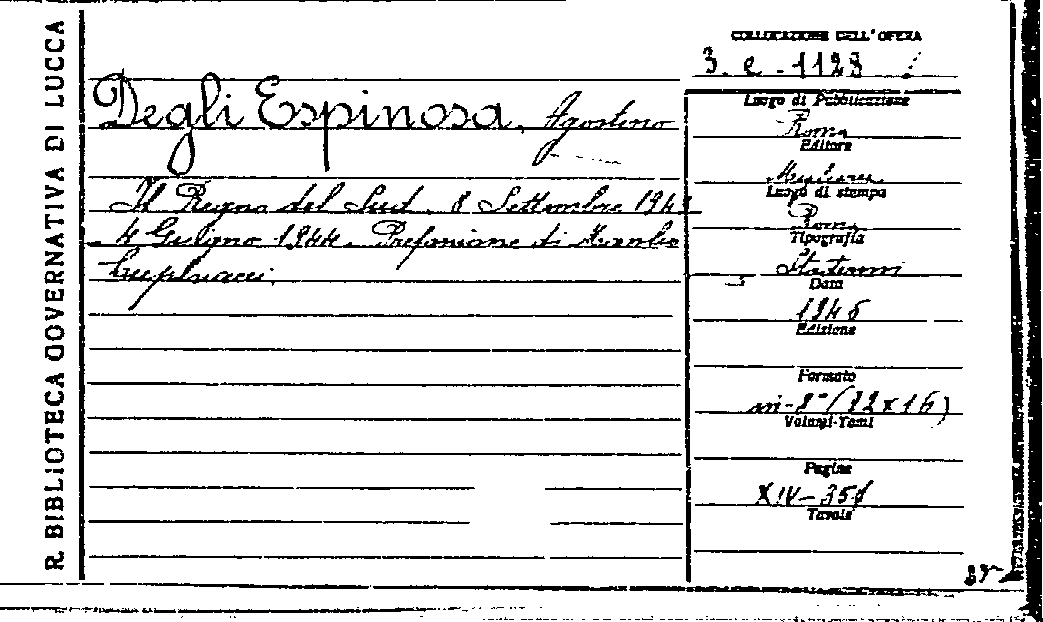 R. BIBLIOTECA GOVERNATIVA DI LUCCA
COLLOCAZIONE DELL'OPERA
3. e. 1128
Degli Espinosa, Agostino
Il Regno del Sud. 8 Settembre 194
4 Giugno 1944. Prefazione di
Luogo di Pubblicazione
Roma
Editore
Migliaresi
Luogo di stampa
Roma
Tipografia
Data
1946
Edizione
Formato
in-8° (22x16)
Volumi-Tomi
Pagine
XIV-351
Tavole